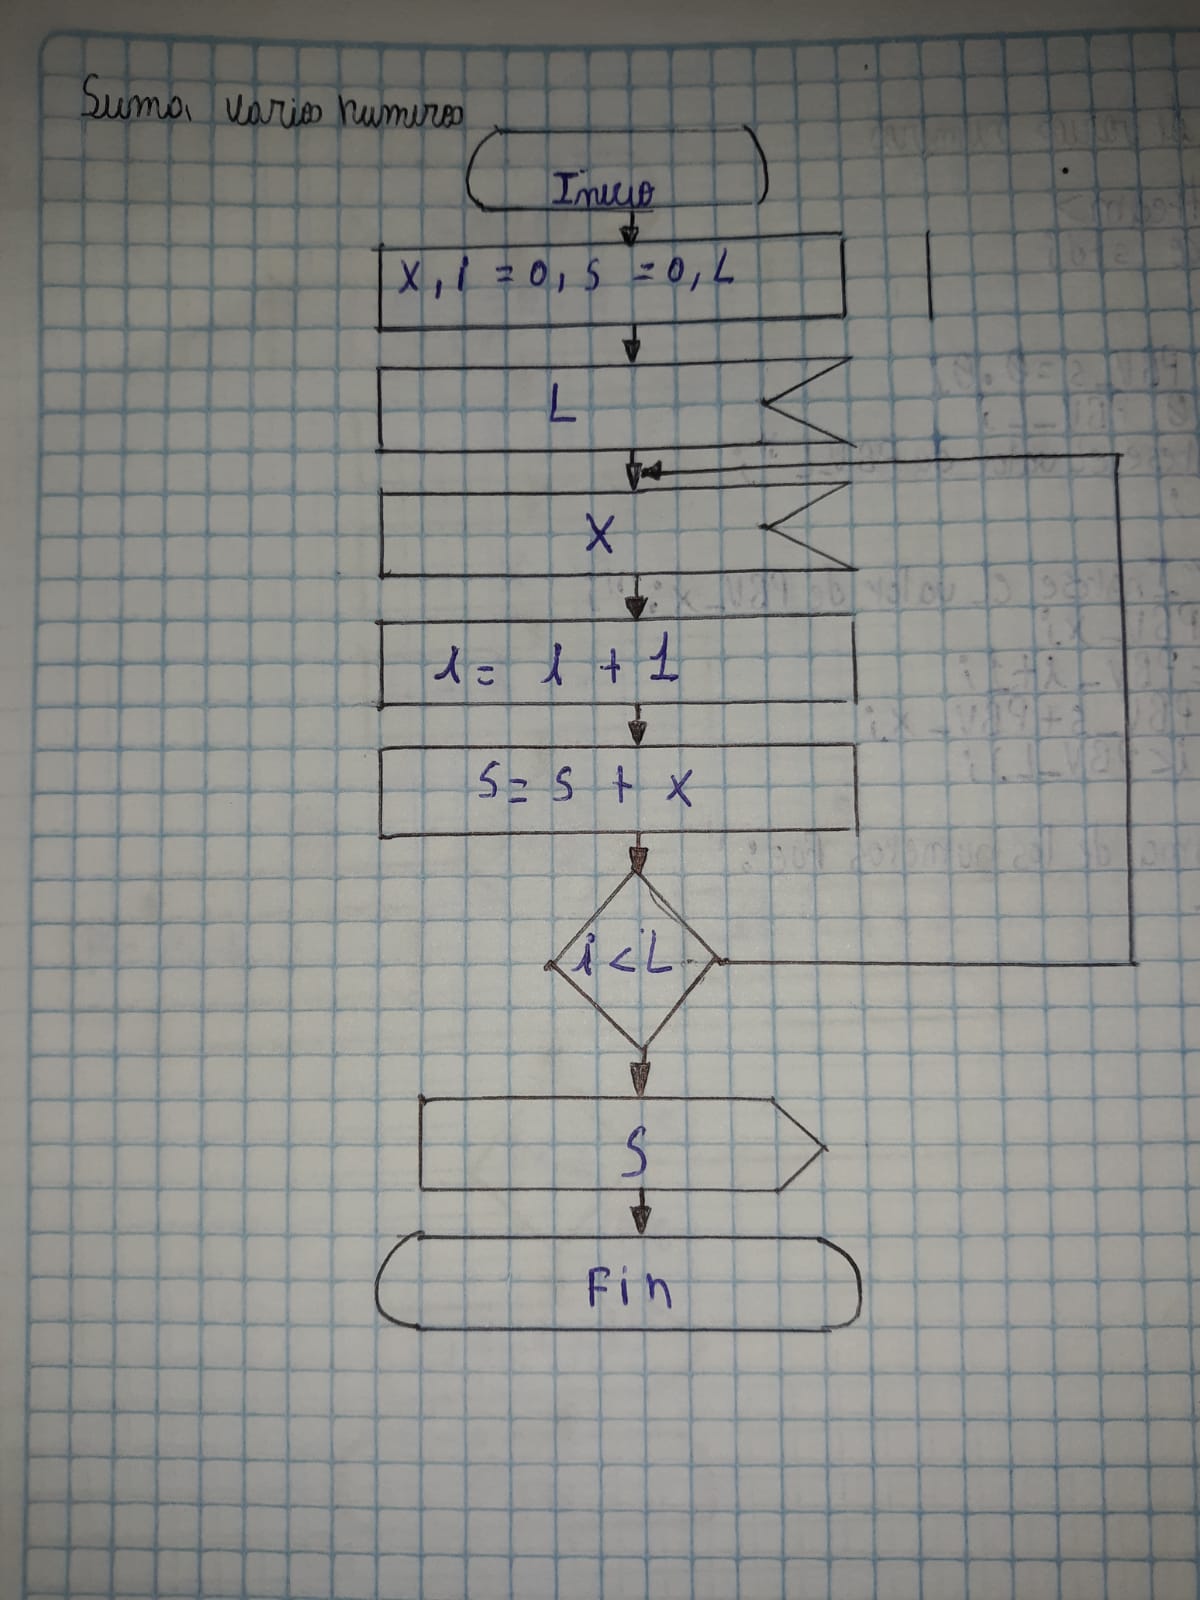 Suma varios numeros
Inicio
X, i = 0, S = 0, L
L
X
i = i + 1
S = S + X
i < L
S
Fin